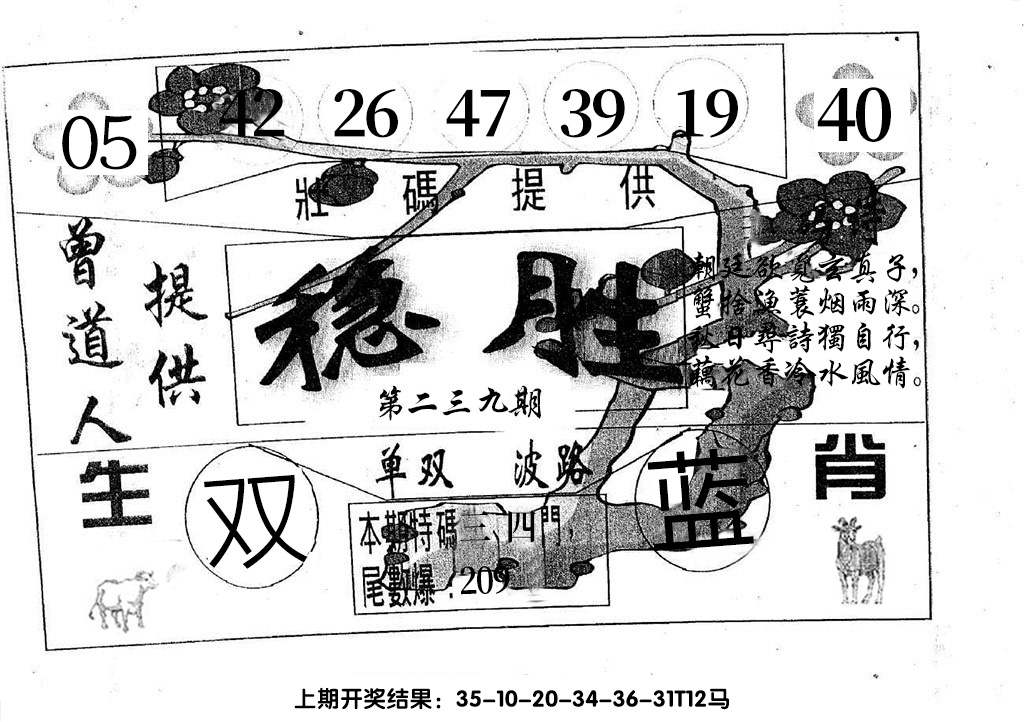 05 42 26 47 39 19 40
壯碼提供
特
曾道人
提供
穩胜
第二三九期
朝廷欲覓玄真子，
蟹恰漁蓑烟雨深。
秋日尋詩獨自行，
藕花香冷水風情。
生 肖
单双 波路
双 蓝
本期特碼三、四門，
尾數爆：209
上期开奖结果：35-10-20-34-36-31T12马